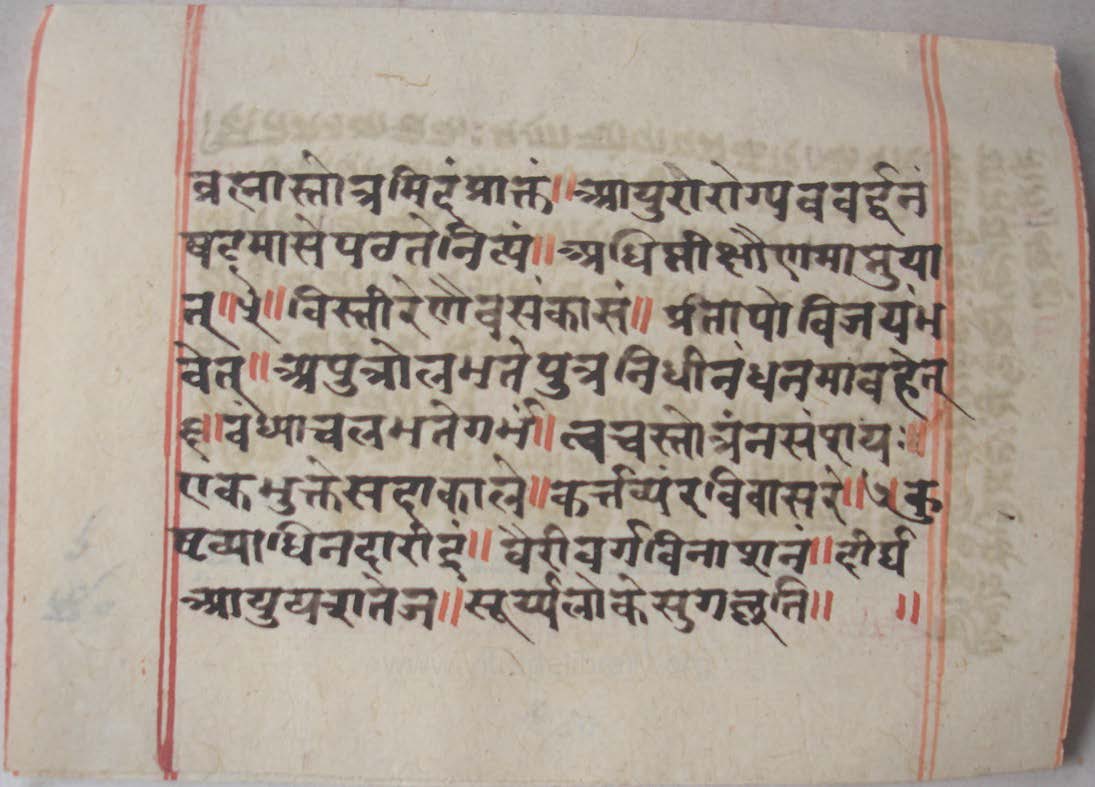 ब्रह्मास्तोत्रमिदंप्राक्तं॥आयुरोरोग्यववर्द्धनं
षटमासेपठतेनित्यं॥अधिम्नीक्षौणमाप्नुया
त्॥५॥विस्तीरेणैवसंकासं॥प्रतापोविजयंभ
वेत्॥अपुत्रोलभतेपुत्रनिधीनंधनमावहेत्
६॥वंध्याचलभतेगर्भं॥त्वचस्तोत्रंनसंशयः॥
एकभुक्तेसदाकाले॥कर्त्तव्यंरविवासरे॥७॥कु
ष्टव्याधिनदारीद्रं॥वैरीवर्गविनाशनं॥दीर्घ
आयुयशतेज॥सूर्य्यलोकेसुगछति॥ ॥